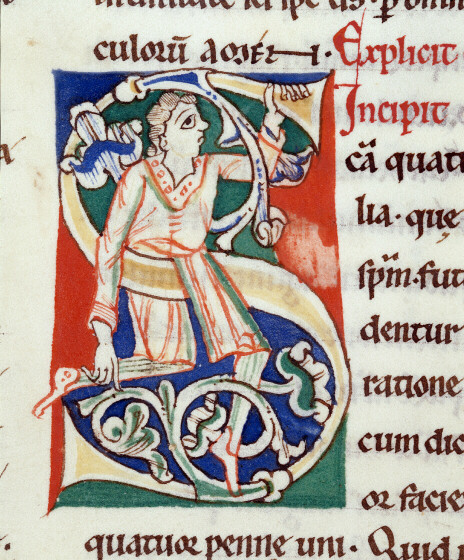 culorū amen. Explicit
Incipit
S
cā quatu
lia. que
spm. fut
dentur
ratione
cum dic
or facie
quatuor penne uni. Quid